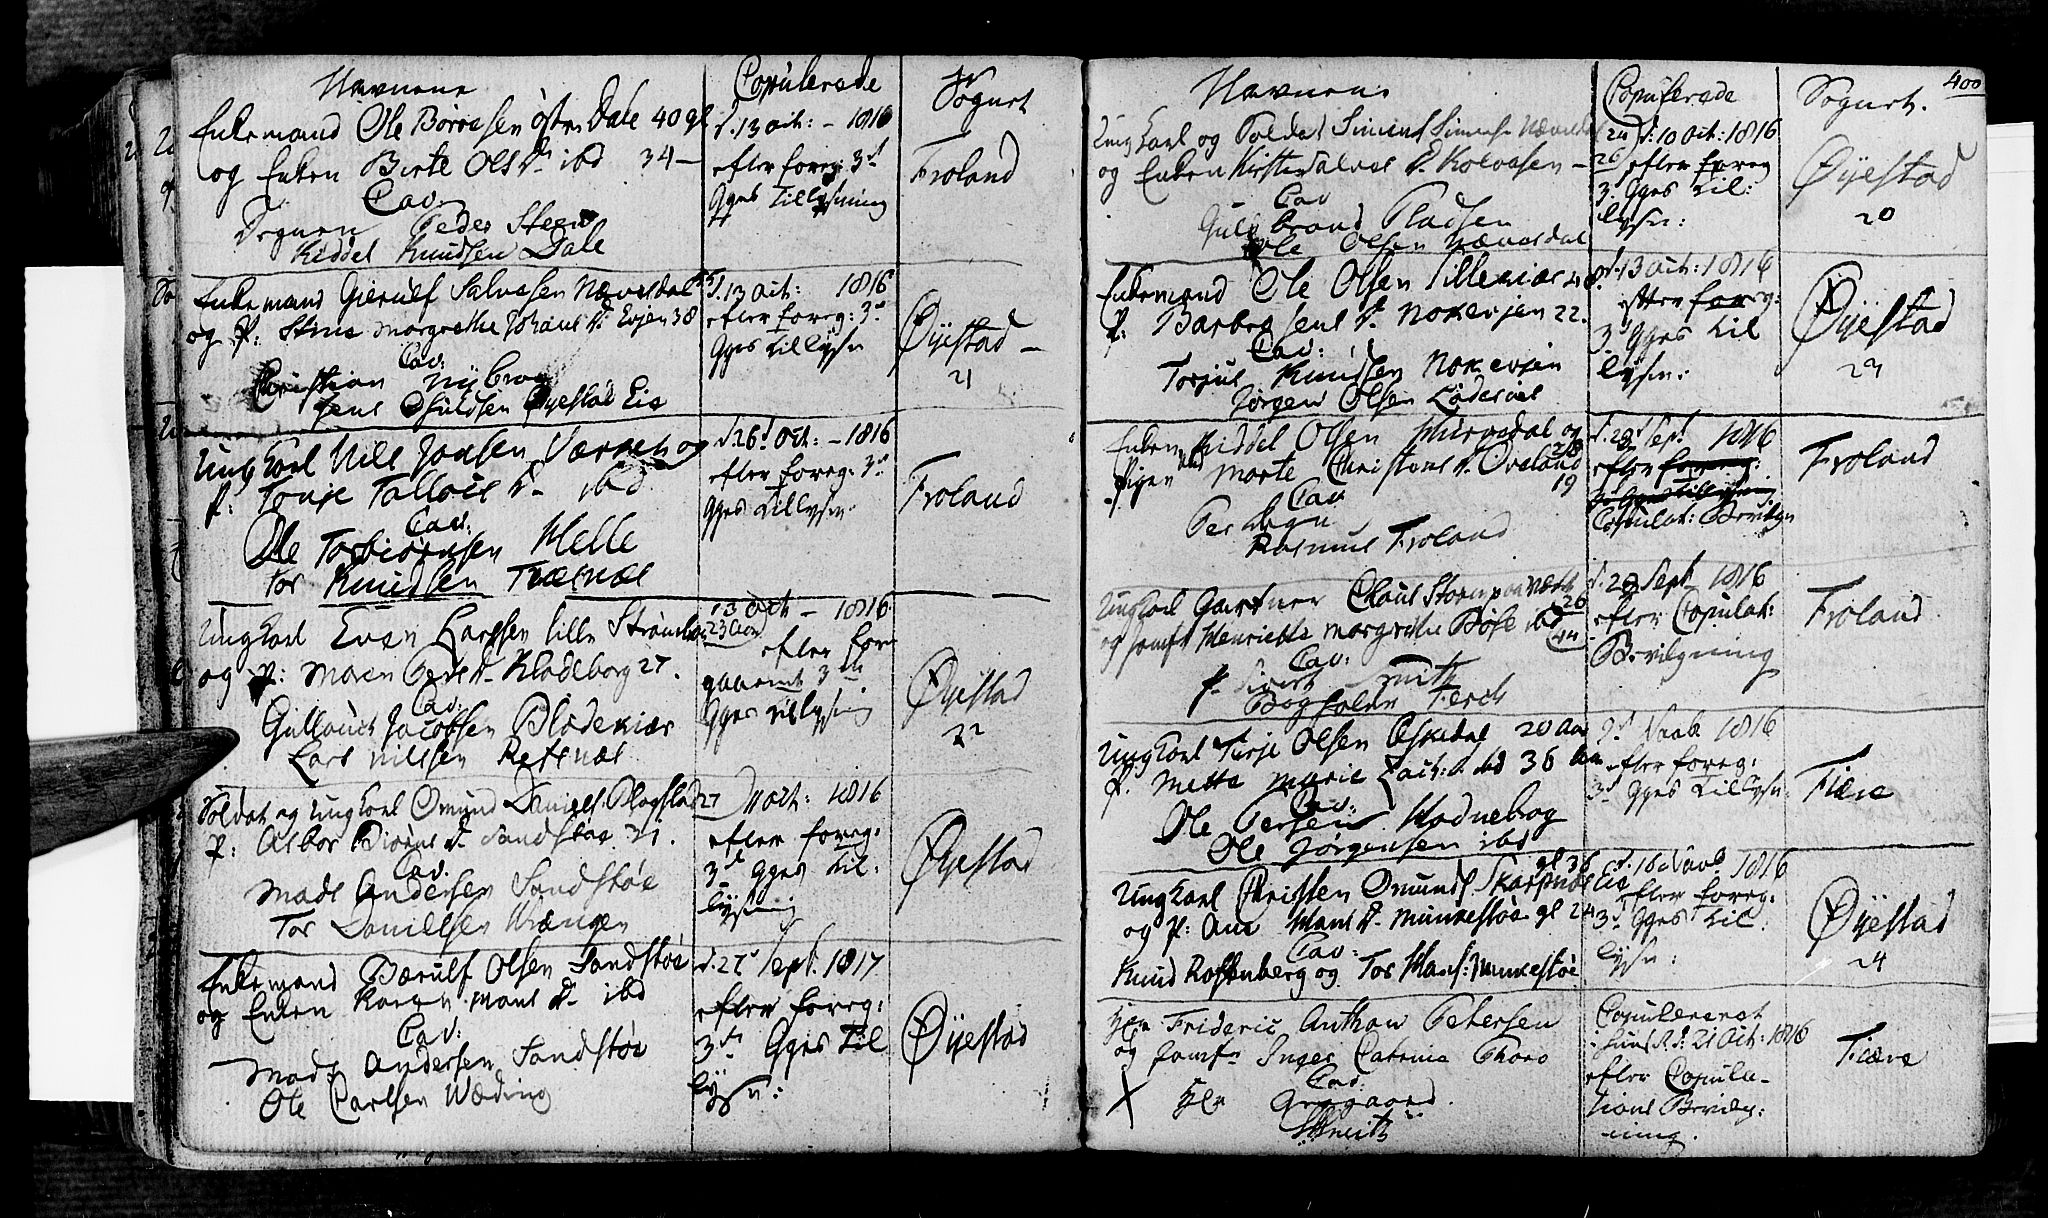 Navnene
Copulerede
Sognet
Enkemand Ole Børresen østre Dale 40 gl
og Enken Birte Olsd. ibd 34 –
Cav
Degnen Peder Steen
Kiddel Knudsen Dale
d. 13 oct: – 1816
efter foreg: 3d
Gges Tillysning
Froland
Enkemand Gierulf Salvesen Nævesdal
og P: Stine Margrethe Johansd. Evjen 38
Cav:
Christian Nybroe
Jens Øyestad Eie
d. 13 Oct: 1816
efter foreg: 3d
Gges Tillysn
Øyestad –
21
Ung Karl Nils Jensen og
P: Tonje Tallaksd. ibd
Cav:
Ole Torbiørnsen Helle
Tor Knudsen Træsnæs
d 26d Oct: – 1816
efter foreg: 3d
Gges Tillysn
Froland
Ung Karl Even Larssen lille
og P: Maren Persd. Kladeborg 27.
Cav:
Gullouch Jacobsen Blødekiær
Lars Nilssen
13 Oct – 1816
23 Aar
efter for
gaaende 3de
Gges Tillysning
Øyestad
22
Soldat og Ung Karl Omund Daniels. 27
P: Asbor Biørnsd. Sandstøe 21.
Cav:
Mads Andersen Sandstøe
Tor Daniellsen Wrængen
oct: 1816
efter foreg:
3d Gges Til:
lysning
Øyestad
Enkemand Bærulf Olsen Sandstøe
og Enken Karen Mons d. ibd
Cav:
Mads Andersen Sandstøe
Ole Carlsen Wæding
d. 22d Sept. 1817
efter foreg:
3de Gges Til
lysn:
Øyestad
400
Navnene
Copulerede
Sognet.
Ung Karl og Soldat Simend Simens. 24
og Enken d. Kolvasen – 26
Cav
Guldbrand Pladsen
Ole Olsen Nævesdal
d: 10 Oct: 1816
efter foreg
3d Gges Til:
lysn:
Øyestad
20
Enkemand Ole Olsen Lillekiær 48
P: Barbro Jensd. Noxevjen 22.
Cav:
Torjus Knudsen Noxevjen
Jørgen Olsen Lødesøel
d. 13 Oct: 1816
efter foreg:
3d Gges Til
lysn:
Øyestad
23
Kiddel Olsen og 28
Pigen Marte Christensd. Øveland
19
Cav
Per Degn
Rasmus Froland
d. 29d Sept 1816
efter
Copulat: Bevilgn
Froland
Ung Karl Gartner Claus Storm 26
og Jomfr Henriette Margrethe Bøse ibd 24
Cav:
P. Sivert Smith
Bogholder Ferch
d. 29 Sept 1816
efter Copulat:
Bevilgning
Froland
Ung Karl Terje Olsen Eskedal 20 Aar
P. Mette Marie Zach: d. ibd 36 Aar
Cav:
Ole Persen Hodnebog
Ole Jørgensen ibd
3d Novb 1816
efter foreg:
3d Gges Tillysn:
Fiære
gl 36
Ung Karl Christen Omunds. Skarpnæs Eie
og P: Ane Hansd. Munkestøe gl 24
Cav:
Knud Roffenberg og Tor Hans: Munkestøe
d. 16 Novb. 1816
efter foreg.
3d Gges Til:
lysn:
Øyestad
24
Hr Frideric Anthon Petersen
og Jomfr Inger Catrine Thoro
Cav:
X Hr Grøgaard.
Smith
Copuleret
i Huset d. 21 Oct: 1816
efter Copula-
tions Bevilg:
ning.
Fiære